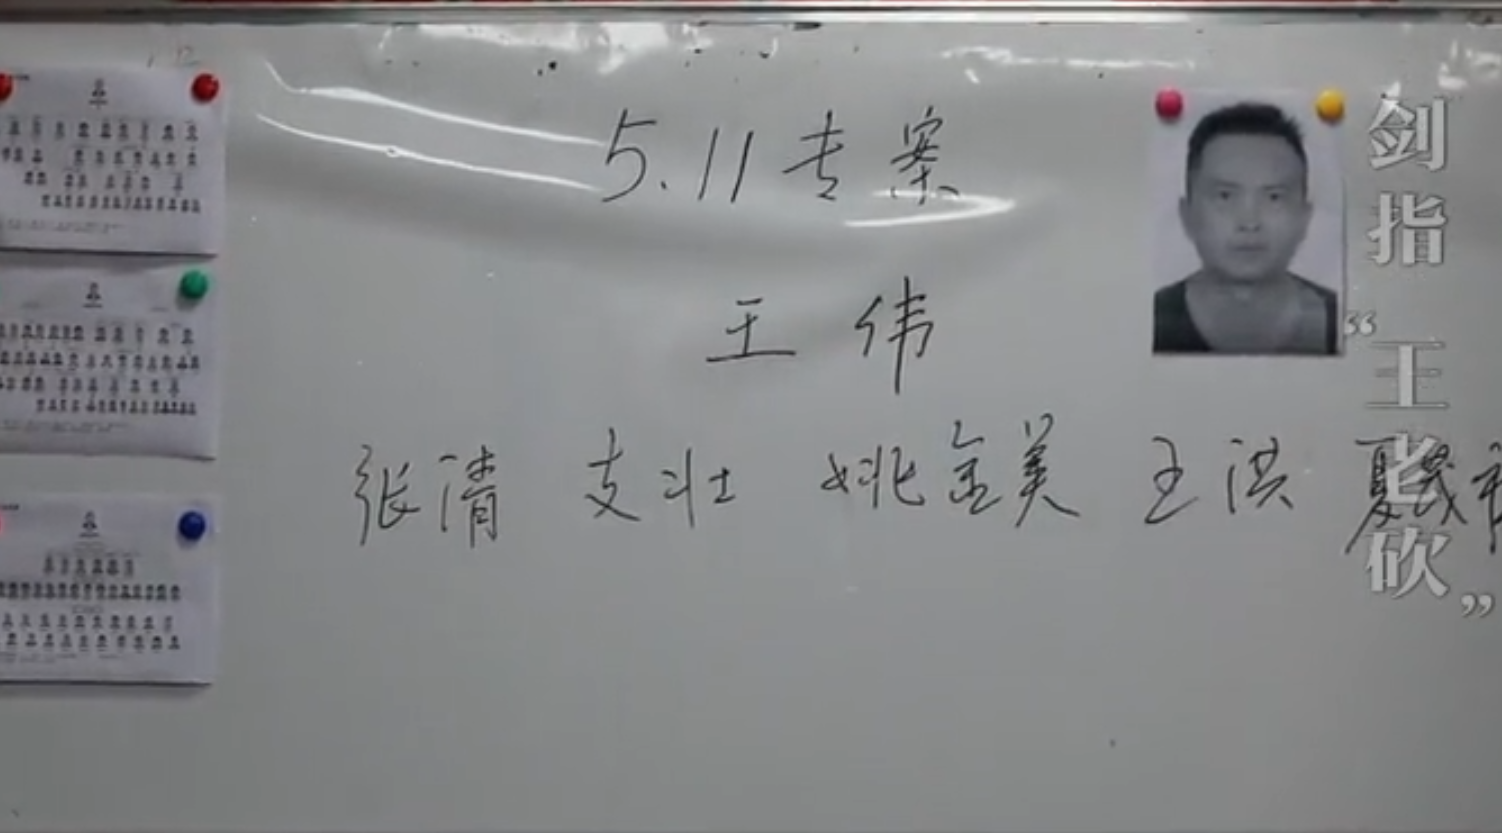 5.11专案
王伟
张清 支壮 姚金美 王洪 夏
剑指“王老砍”